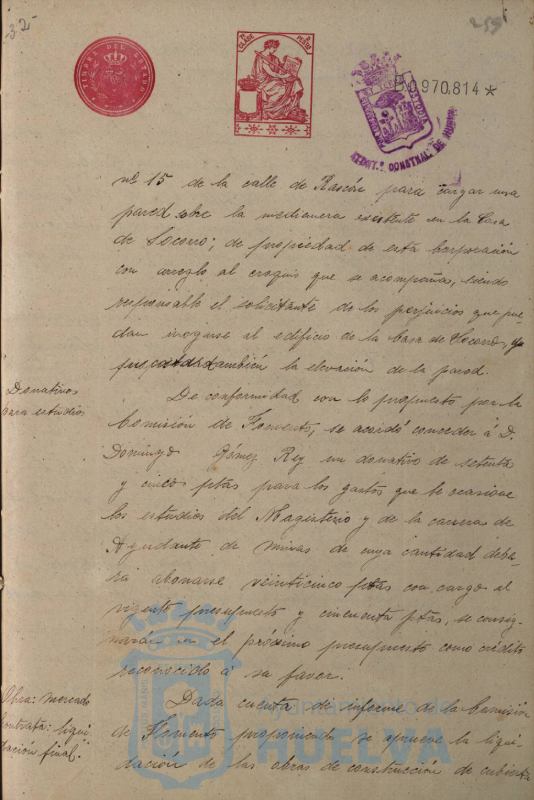 -32-
259
TIMBRE DEL ESTADO
7ª CLASE
B.0970.814*
nº 15 de la calle de Rascón para cargar una
pared sobre la medianera existente en la Casa
de Socorro; de propiedad de esta Corporación
con arreglo al croquis que se acompaña, siendo
responsable el solicitante de los perjuicios que pue-
dan irrogarse al edificio de la Casa de Socorro,
también la elevación de la pared.
Donativos
para estudios
De conformidad con lo propuesto por la
Comisión de Fomento, se acordó conceder á D.
Domingo Gómez Rey un donativo de setenta
y cinco ptas para los gastos que le ocasione
los estudios del Magisterio y de la carrera de
Ayudante de minas de cuya cantidad debe-
rá abonarse veinticinco ptas con cargo al
vigente presupuesto y cincuenta ptas, se consig-
narán en el próximo presupuesto como crédito
reconocido á su favor.
Obra: mercado
Contrata: liqui-
dación final.
Dada cuenta de informe de la Comisión
de Fomento proponiendo se apruebe la liqui-
dación de las obras de construcción de cubierta
Ayuntamiento de
HUELVA